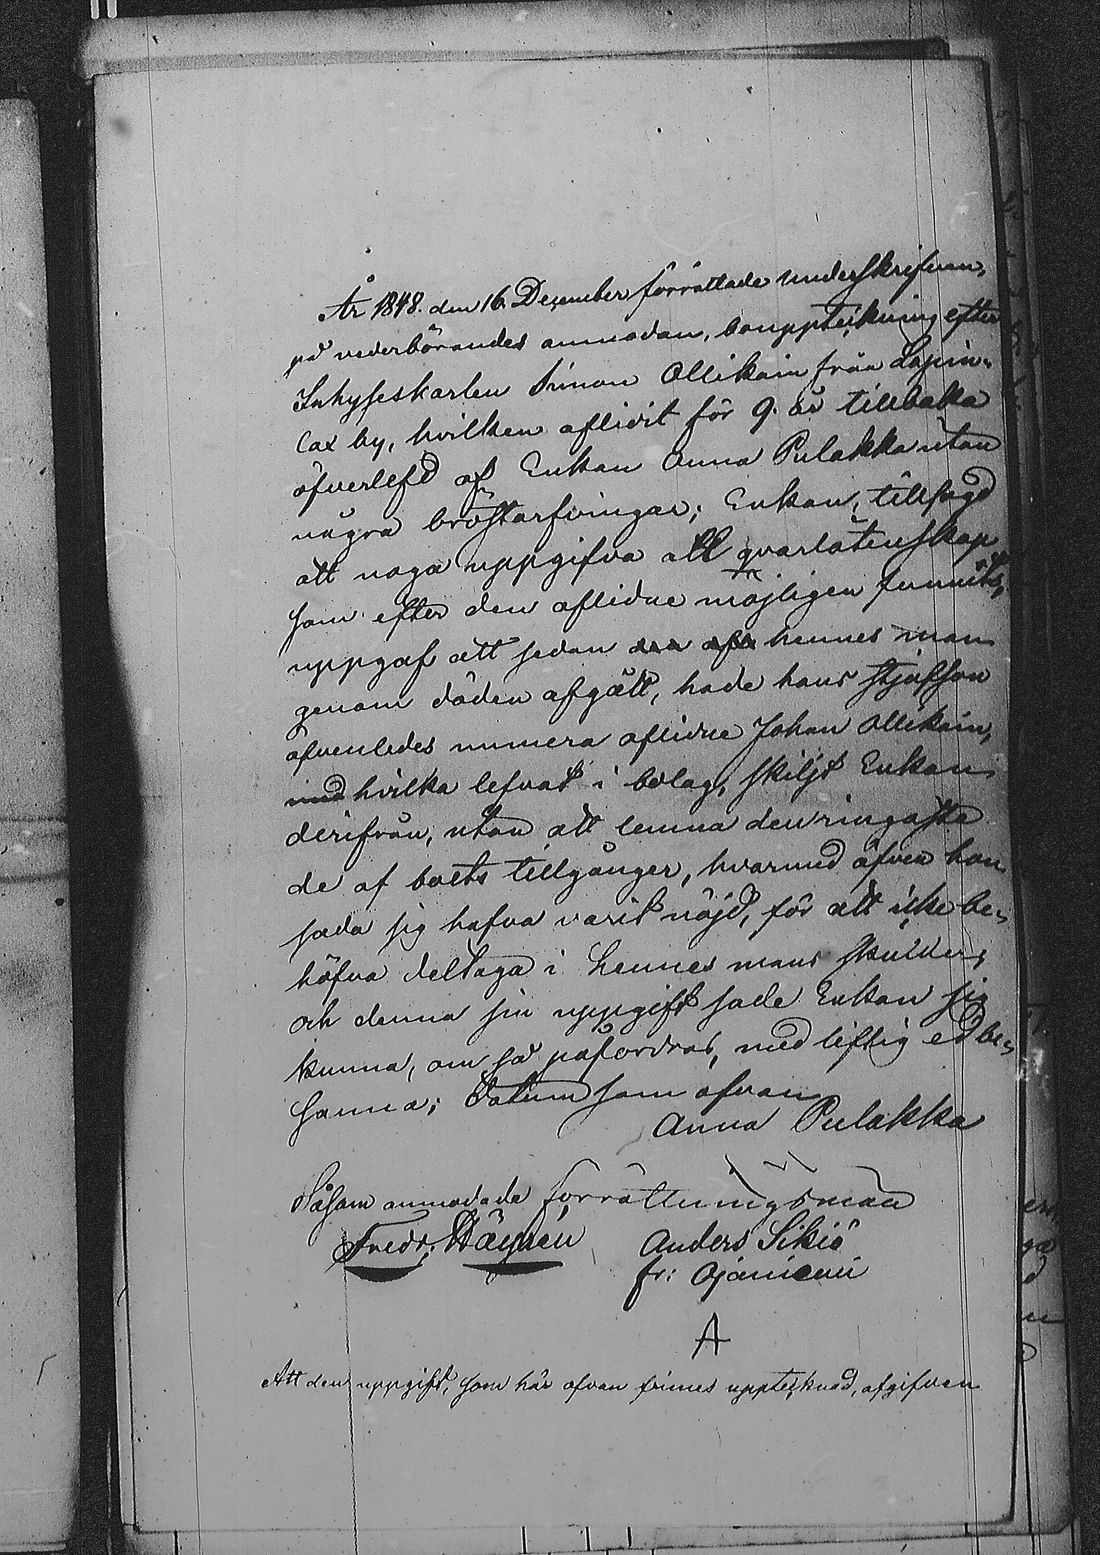 År 1848. den 16 December förrättade underskrifven,
på vederbörandes anmodan, bouppteckning efter
Inhyseskarlen Simon Ollikain från Lapin-
lax by, hvilken aflidit för 9. år tillbaka
öfverlefd af Enkan Anna Pulakka utan
några bröstarfvingar; Enkan, tillsagd
att noga uppgifva all qvarlåtenskap
som efter den aflidne möjligen funnits,
uppgaf att sedan hennes man
genom döden afgått, hade hans stjufson
äfvenledes numera aflidne Johan Ollikain,
med hvilka lefvat i bolag, skiljt Enkan
derifrån, utan att lemna den ringaste
de af boets tillgånger, hvarmed äfven hon
sade sig hafva varit nöjd, för att icke be-
höfva deltaga i hennes mans skulder,
och denna sin uppgift sade Enkan sig
kunna, om så påfordras, med liflig ed be-
sanna; Datum som ofvan
Anna Pulakka
Såsom anmodade förrättningsmän
Fredr. Häyrén Anders Sikiö
fr: Ojaniemi
A
Att den uppgift, som här ofvan finnes upptecknad, afgifven